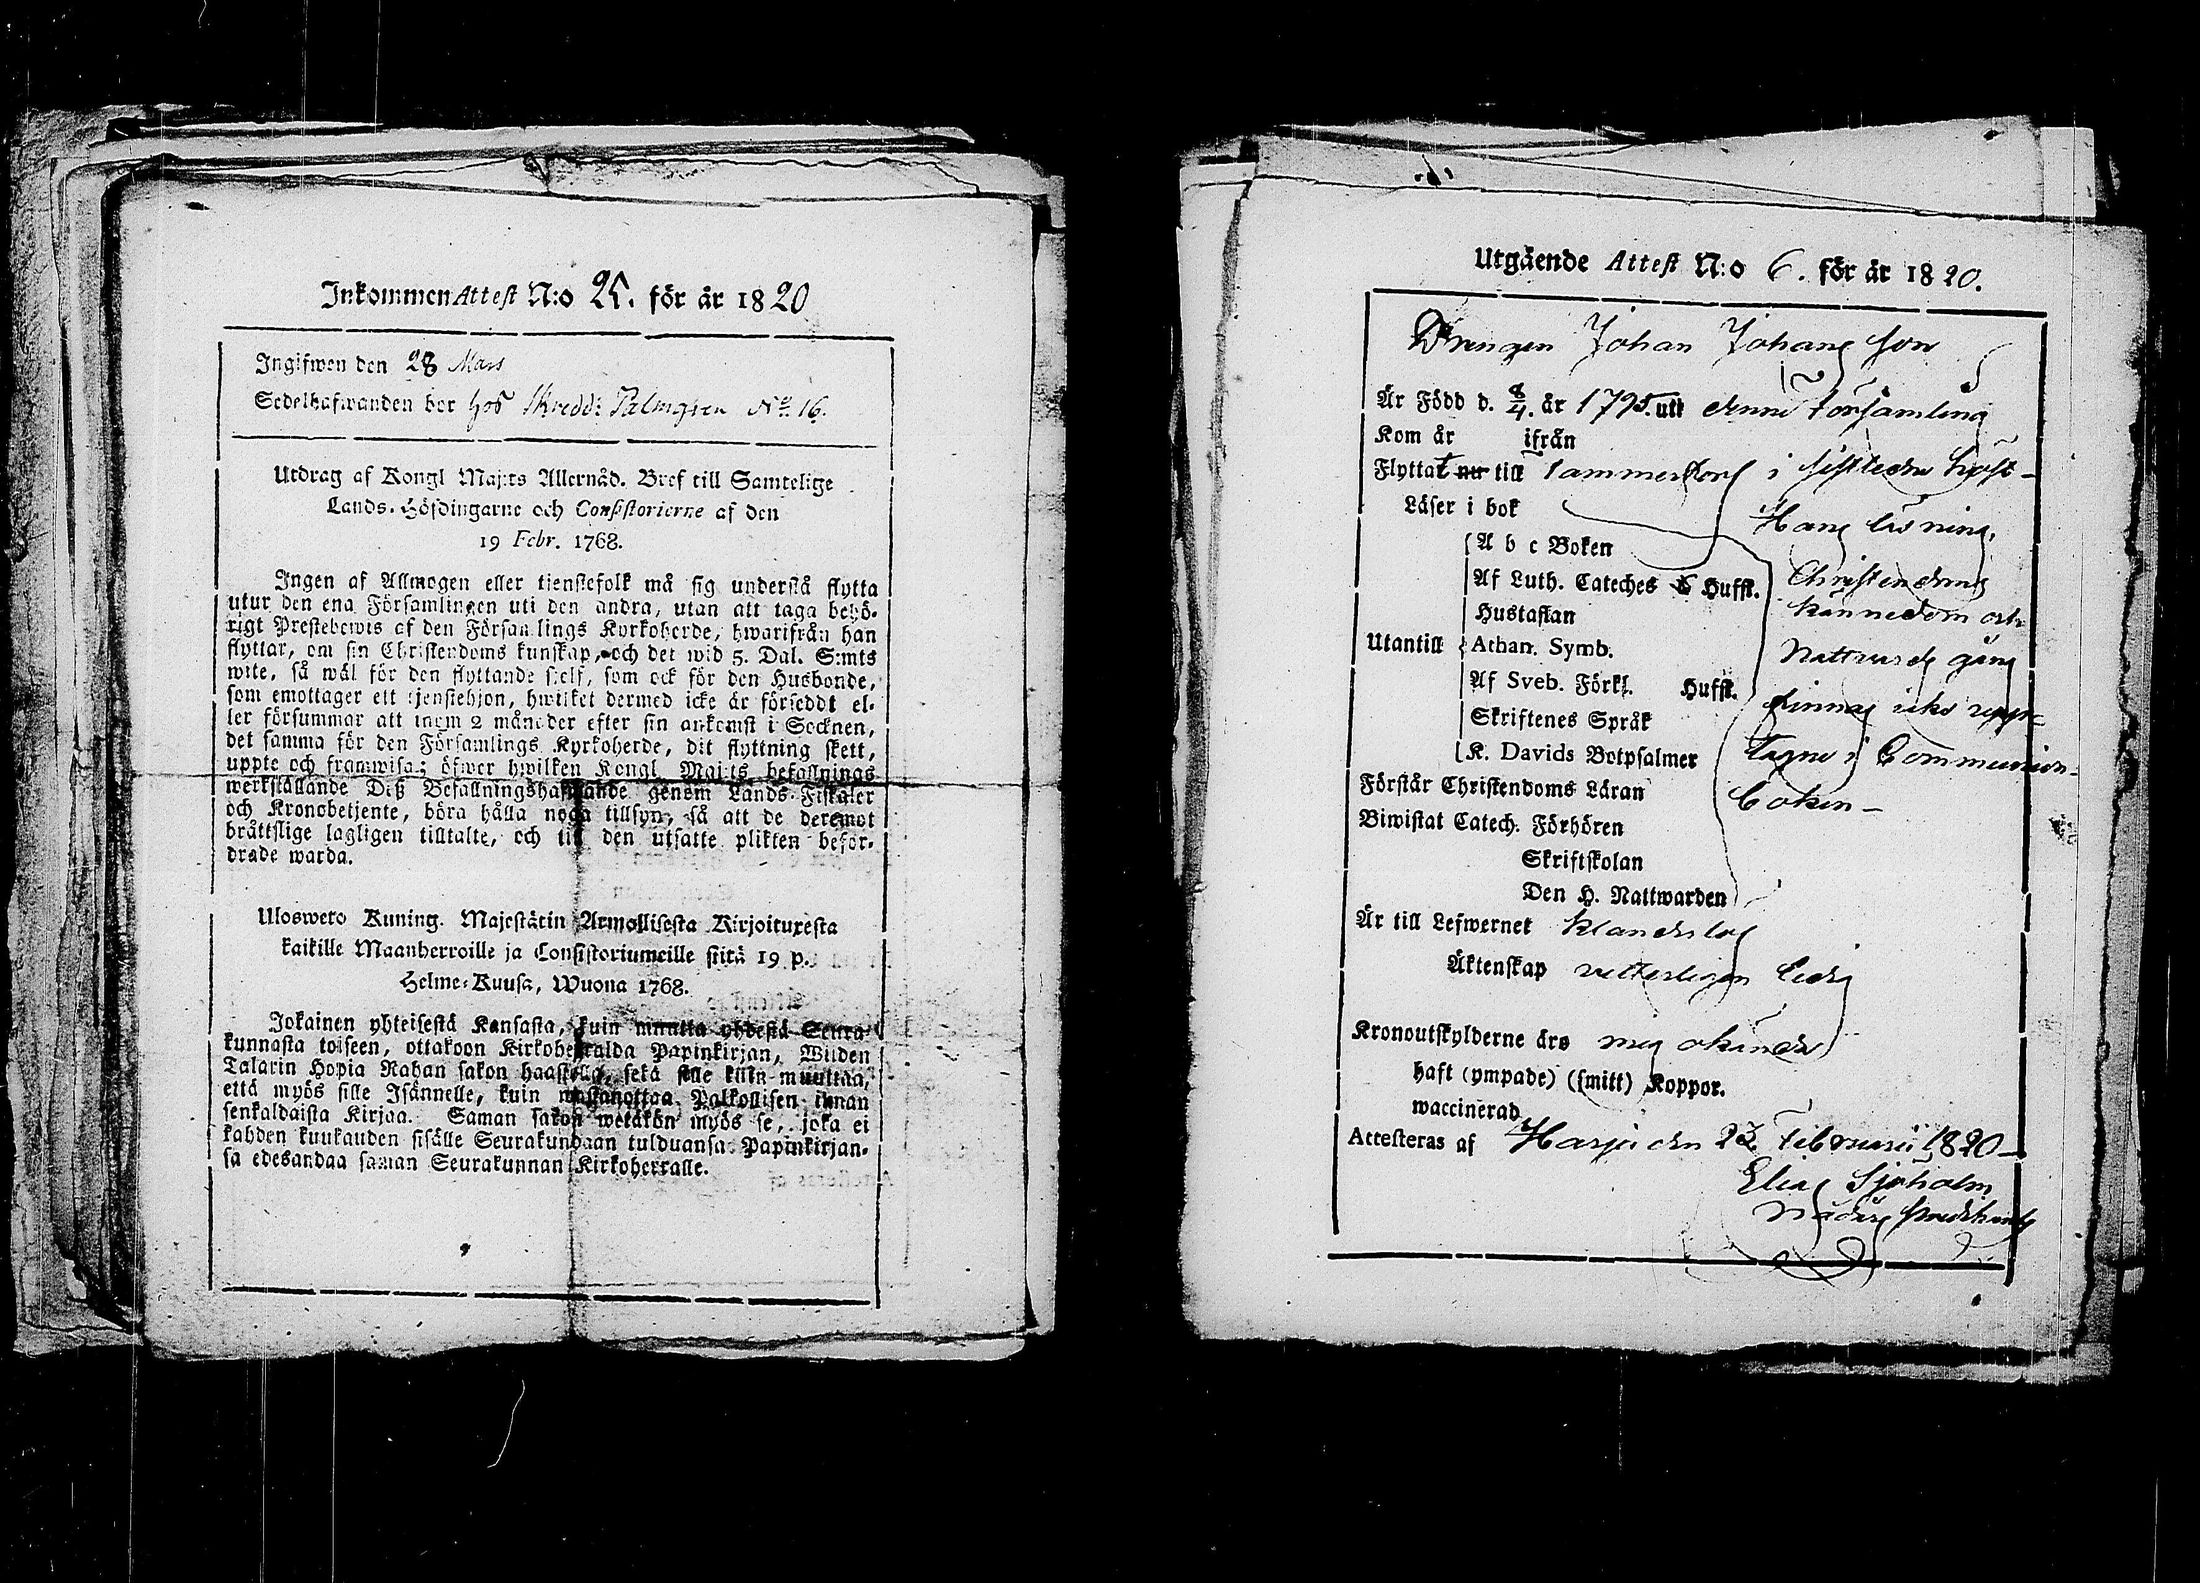 Inkommen Attest N:o 25. för år 1820
Ingifwen den 28 Mars
Sedelhafwanden bor hos Skredd: Palmgren No. 16.
Utdrag af Kongl Maj:ts Allernåd. Bref till Samtelige
Lands-Höfdingarne och Consistorierne af den
19 Febr. 1768.
Ingen af Allmogen eller tjenstefolk må sig understå flytta
utur den ena Församlingen uti den andra, utan att taga behö-
rigt Prestebewis af den Församlings Kyrkoherde, hwarifrån han
flyttar, om sin Christendoms kunskap, och det wid 5. Dal. S:mts
wite, så wäl för den flyttande sjelf, som ock för den Husbonde,
som emottager ett tjenstehjon, hwilket dermed icke är försedt el-
ler försummar att inom 2 månader efter sin ankomst i Socknen,
det samma för den Församlings Kyrkoherde, dit flyttning skett,
uppte och framwisa; öfwer hwilken Kongl Maj:ts befallnings
werkställande Deß Befallningshafwande genom Lands-Fiskaler
och Kronobetjente, böra hålla noga tillsyn, så att de deremot
bråttslige lagligen tilltalte, och till den utsatte plikten beför-
drade warda.
Ulosweto Kuning. Majestätin Armollisesta Kirjoituxesta
kaikille Maanherroille ja Consistoriumeille siitä 19 p.
Helme-Kuusa, Wuona 1768.
Jokainen yhteisestä Kansasta, kuin muutta yhdestä Seura-
kunnasta toiseen, ottakoon Kirkoherralda Papinkirjan, Wiiden
Talarin Hopia Rahan sakon haastolla, sekä sille kuin muuttaa,
että myös sille Isännelle, kuin wastanottaa Palkollisen ilman
senkaldaista Kirjaa. Saman sakon wetäkön myös se, joka ei
kahden kuukauden sisälle Seurakundaan tulduansa Papinkirjan-
sa edesandaa saman Seurakunnan Kirkoherralle.
Utgående Attest N:o 6. för år 1820.
Drengen Johan Johans son
Är Född d. 8/4. år 1795. uti denne Församling
Kom år ifrån
Flyttat nu till Tammerfors i sistledne höst-
Läser i bok
Hans läsning,
A b c Boken
Christendoms
Af Luth. Cateches 6 Hufst.
kännedom och
Hustaflan
Utantill Athan. Symb.
Nattvards gång
Af Sveb. Förkl. Hufst.
finnas icke upp-
Skriftenes Språk
K. Davids Botpsalmer
tagne i Communion-
Förstår Christendoms Läran
boken-
Biwistat Catech. Förhören
Skriftskolan
Den H. Nattwarden
Är till Lefwernet klanderlös
Äktenskap vetterligen ledig
Kronoutskylderne äro mig okände
haft (ympade) (smitt) Koppor.
waccinerad
Attesteras af Harju den 23. Februarii 1820-
Elias Sjöholm